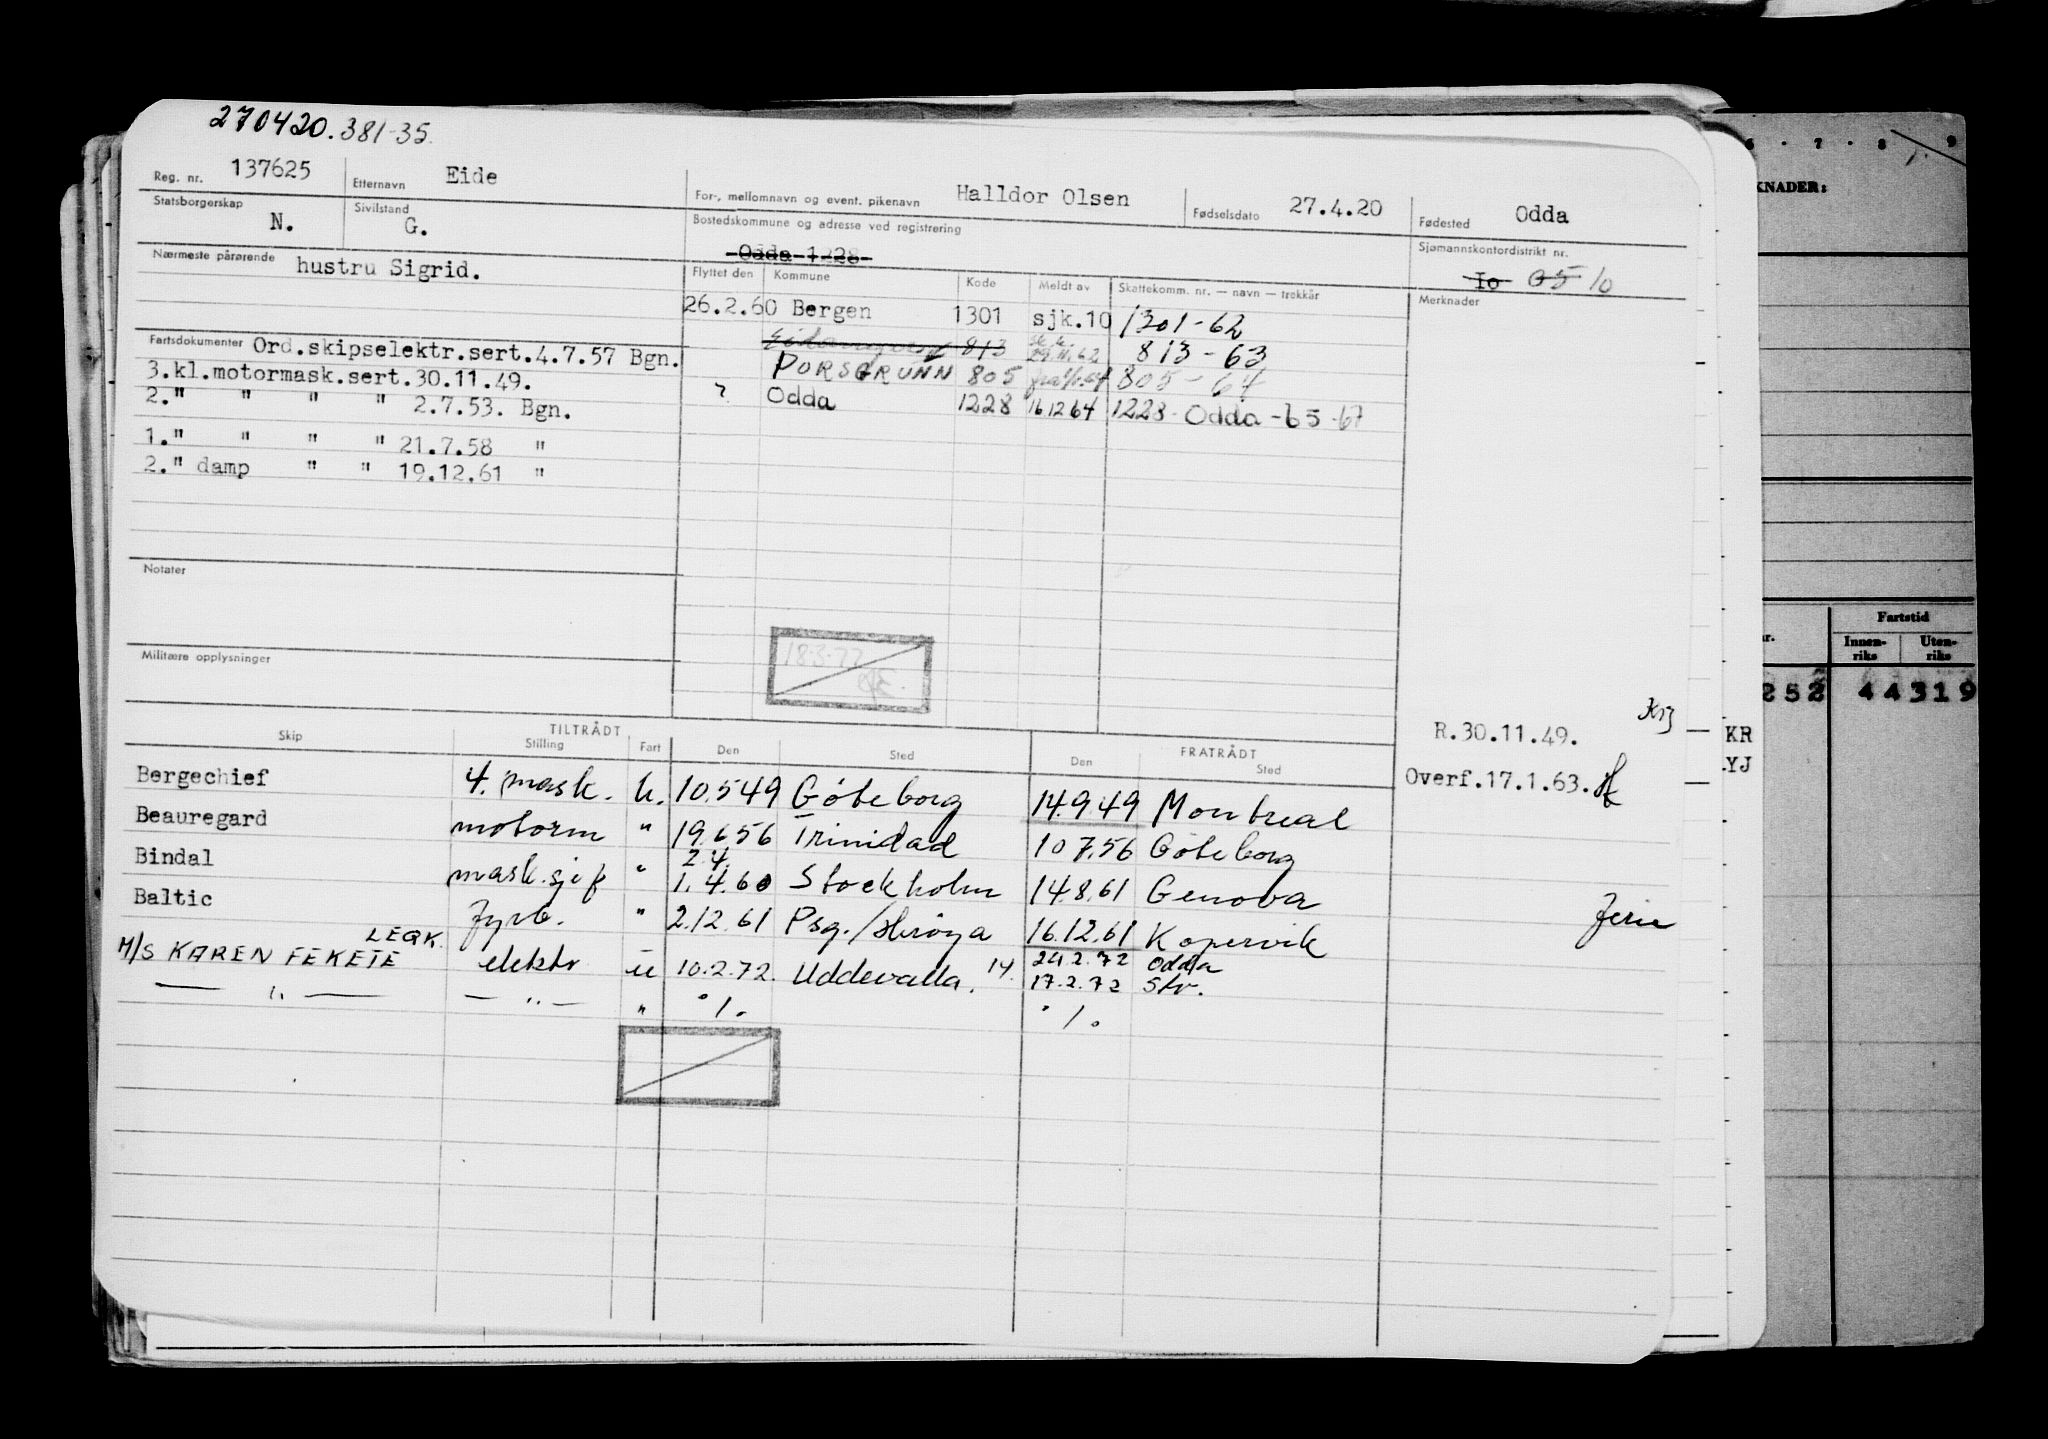 270420.381-35.
Reg. nr. 137625 Etternavn Eide For-, mellomnavn og event. pikenavn Halldor Olsen Fødselsdato 27.4.20 Fødested Odda
Statsborgerskap N. Sivilstand G. Bostedskommune og adresse ved registrering Odda 1228 Sjømannskontordistrikt nr. Io 05 10
Nærmeste pårørende hustru Sigrid. Flyttet den Kommune Kode Meldt av Skattekomm. nr. — navn — trekkår Merknader
26.2.60 Bergen 1301 sjk.10 1301-62
813 29.11.62 813-63
PORSGRUNN 805 805-64
? Odda 1228 16 12 64 1228- Odda -65-67
Fartsdokumenter Ord.skipselektr.sert.4.7.57 Bgn.
3.kl.motormask.sert.30.11.49.
2." " " " 2.7.53. Bgn.
1." " " " 21.7.58 "
2." damp " " 19.12.61 "
Notater
Militære opplysninger
18.3.77
R.30.11.49.
Overf.17.1.63.
Skip TILTRÅDT Stilling Fart Den Sted FRATRÅDT Den Sted
Bergechief 4. mask. u. 10.5 49 Göteborg 14.9.49 Montreal
Beauregard motorm " 19.6 56 Trinidad 10 7.56 Göteborg
2.4.
Bindal mask.sjef " 1.4.60 Stockholm 14.8.61 Genova
Baltic fyrb. " 2.12.61 Psg./Herøya 16.12.61 Kopervik
Ferie
LEQK.
M/S KAREN FEKETE elektr u 10.2.72. Uddevalla. 14. 24.2.72 Odda
17.2.72 Str.
— " — — " — " ./. ./.
6 . 7 . 8 9
KNADER:
KR
YJ
Fartstid
r. Innen-riks Uten-riks
252 44319